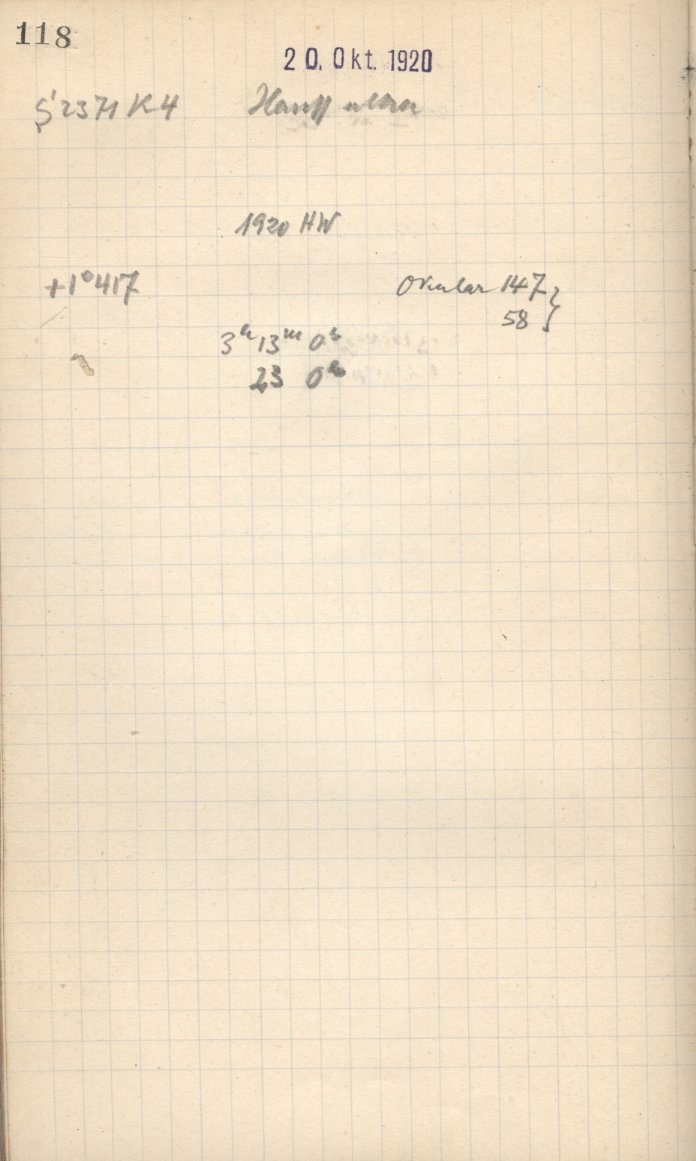 118
20. Okt. 1920
2371 K4 Hauff ultra
1920 HW
+1°417 Okular 147
58
3h 13m 0s
23 0s